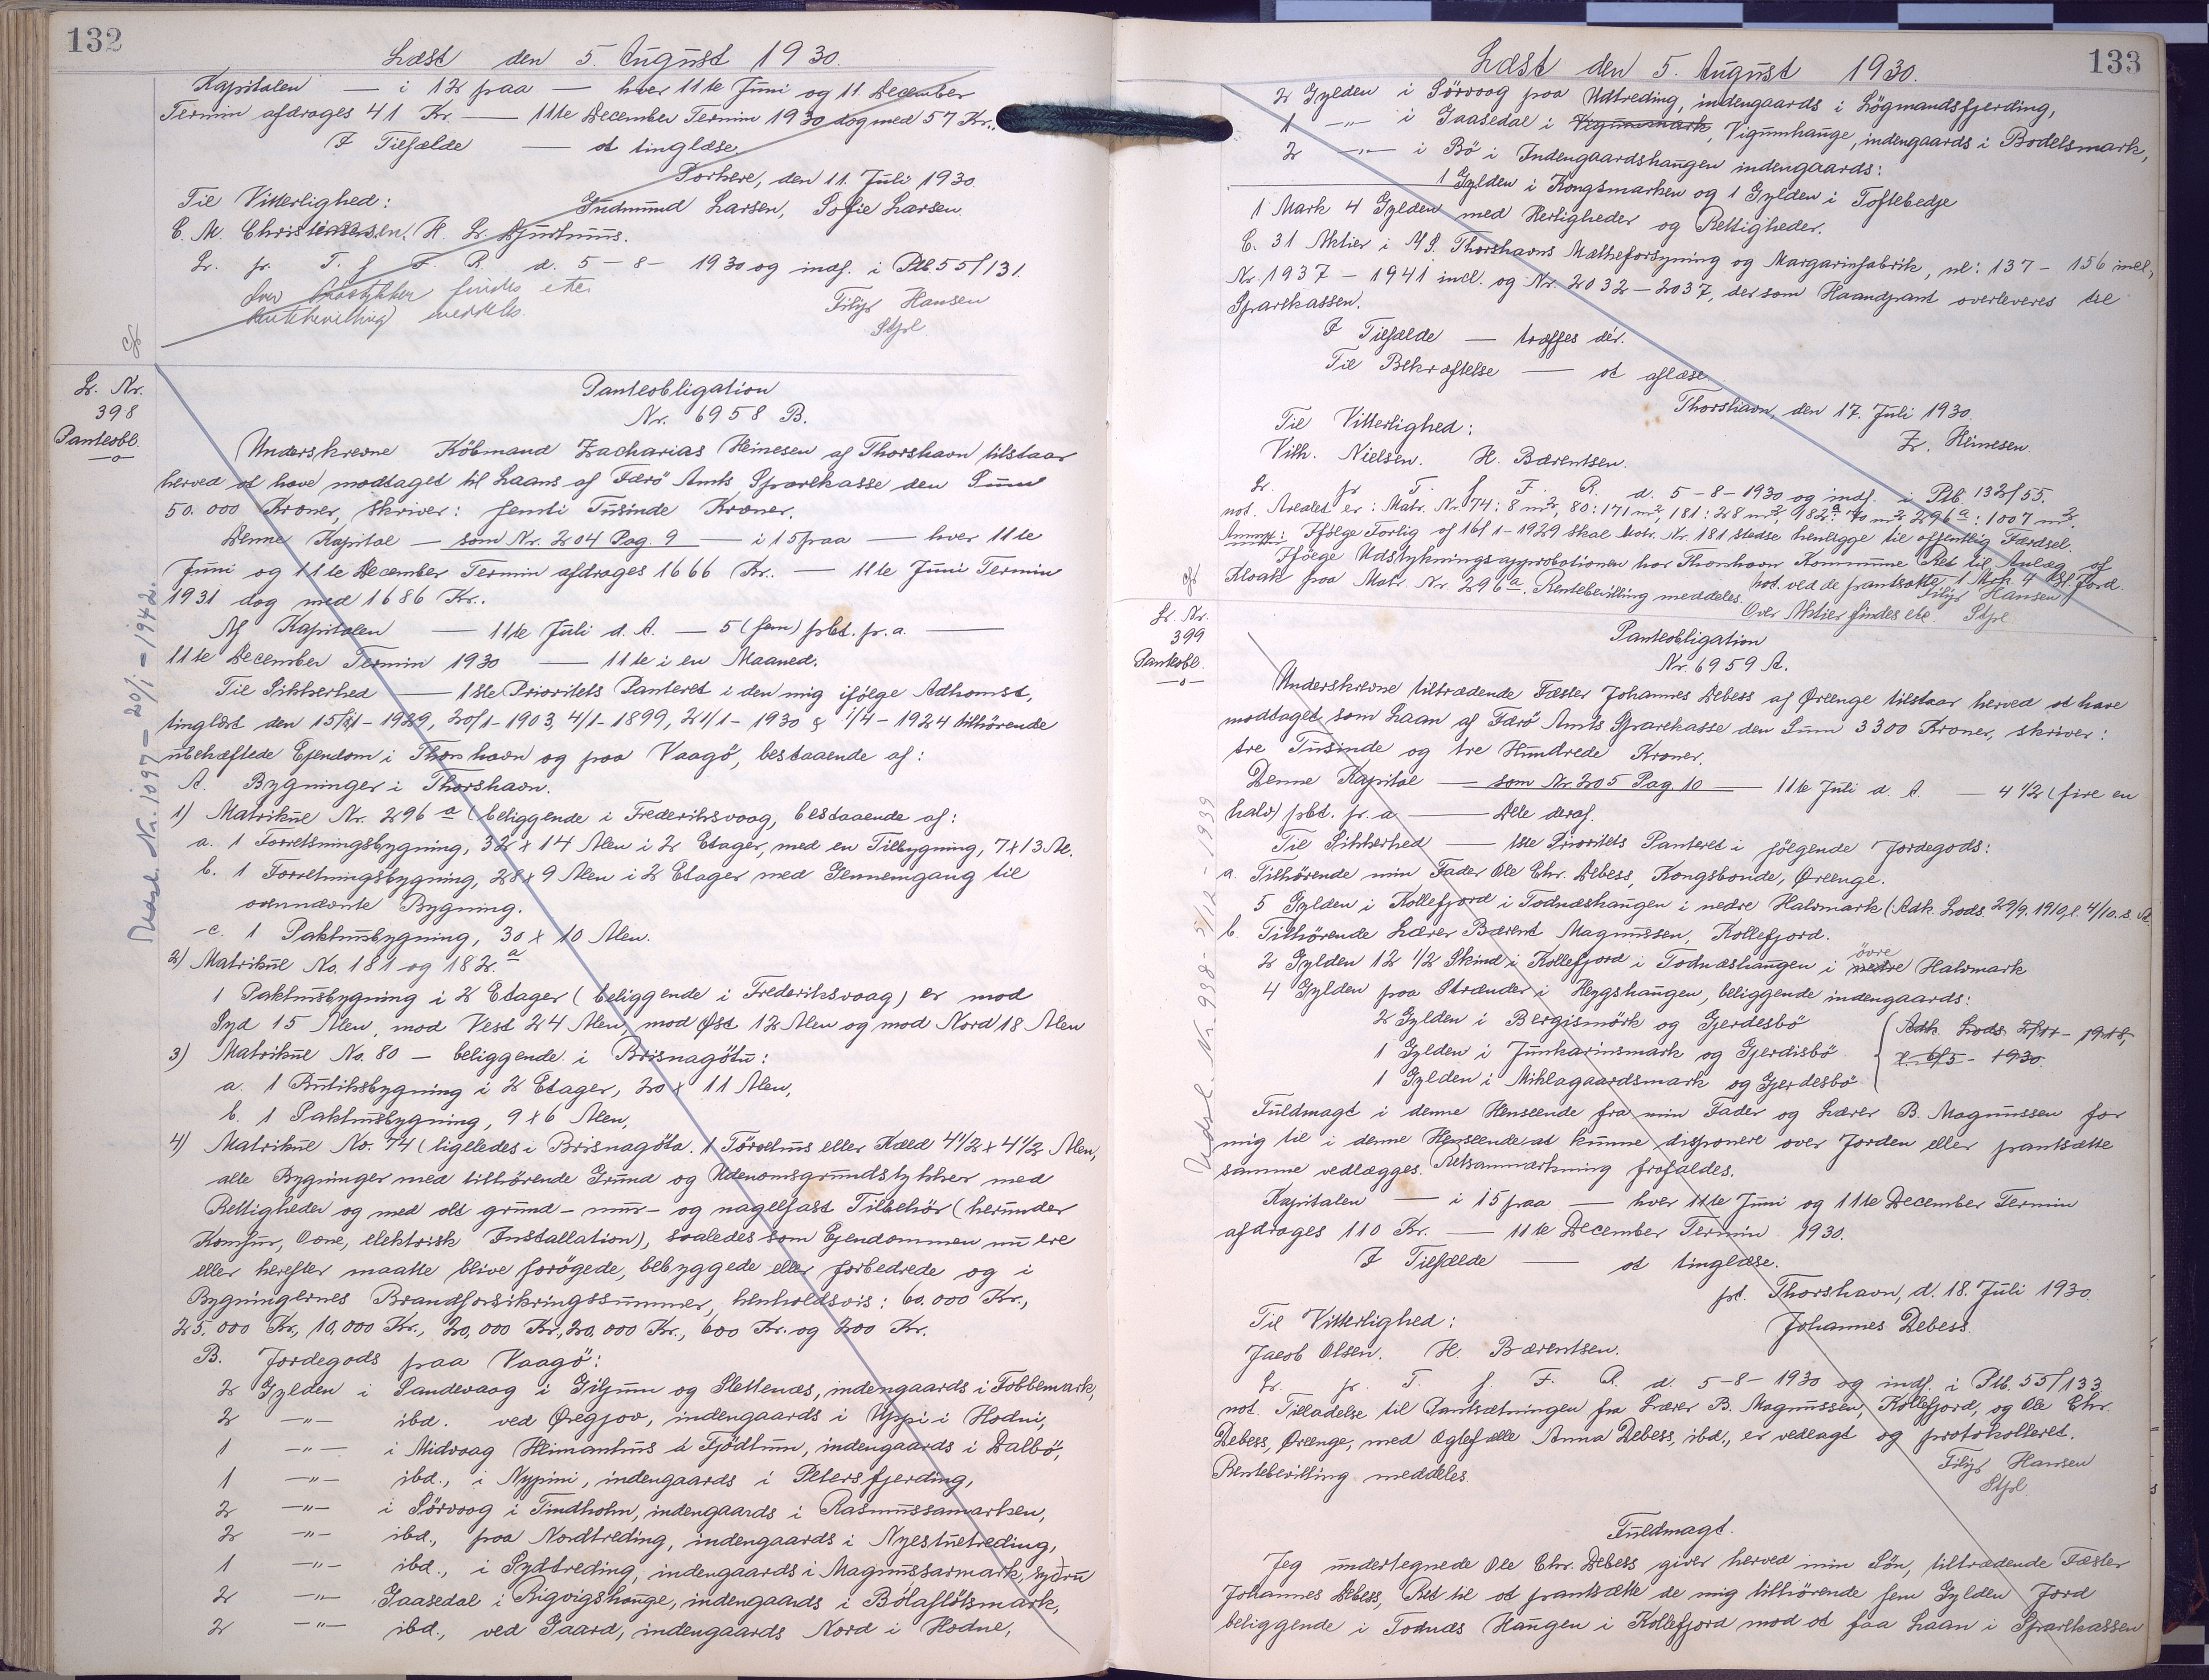 132
Læst den 5. August 1930.
Kapitalen — i 12 paa — hver 11te Juni og 11. December
Termin afdrages 41 Kr. — 11te December Termin 1930 dog med 57 Kr..
I Tilfælde — at tinglæse.
Porkere, den 11. Juli 1930.
Til Vitterlighed: Gudmund Larsen, Sofie Larsen.
C. M. Christiansen. H. Lr. Djurhuus.
Lr. fr. T. f. F. R. d. 5-8-1930 og indf. i Ptb. 55/131.
findes ite. Filip Hansen
Rentebevilling meddeles. Stfol
Lr. Nr.
398
Panteobl.
Panteobligation
Nr. 6958 B.
Underskrevne Köbmand Zacharias Heinesen af Thorshavn tilstaar
herved at have modtaget til Laans af Færö Amts Sparekasse den Sum
50.000 Kroner, skriver: femti Tusinde Kroner.
Denne Kapital — som Nr. 204 Pag. 9 — i 15 paa — hver 11te
Juni og 11te December Termin afdrages 1666 Kr.. — 11te Juni Termin
1931 dog med 1686 Kr..
Af Kapitalen — 11te Juli d. A. — 5 (fem) pbt. pr. a. —
11te December Termin 1930 — 11te i en Maaned.
Til Sikkerhed — 1ste Prioritets Panteret i den mig ifölge Adkomst,
tinglæst den 15/11-1929, 20/1-1903, 4/1-1899, 21/1-1930 & 1/4-1924 tilhörende
ubehæftede Ejendom i Thorshavn og paa Vaagö, bestaaende af:
A. Bygninger i Thorshavn.
1) Matrikul Nr. 296 a (beliggende i Frederiksvaag, bestaaende af:
a. 1 Forretningsbygning, 32 x 14 Alen i 2 Etager, med en Tilbygning, 7x13 Al.
b. 1 Forretningsbygning, 28 x 9 Alen i 2 Etager med Gennemgang til
ovennævnte Bygning.
c. 1 Pakhusbygning, 30 x 10 Alen.
2) Matrikul No. 181 og 182 a
1 Pakhusbygning i 2 Etager (beliggende i Frederiksvaag) er mod
Syd 15 Alen, mod Vest 24 Alen, mod Øst 12 Alen og mod Nord 18 Alen
3) Matrikul No. 80 — beliggende i Brisnagötu:
a. 1 Butiksbygning i 2 Etager, 20 x 11 Alen,
b. 1 Pakhusbygning, 9 x 6 Alen,
4) Matrikul No. 74 (ligeledes i Brisnagöta. 1 Törvehus eller Kæld 4½ x 4½ Alen,
alle Bygninger med tilhörende Grund og Udenomsgrundstykker med
Rettigheder og med alt grund- mur- og nagelfast Tilbehör (herunder
Komfur, Ovne, elektrisk Installation), saaledes som Ejendommen nu ere
eller herefter maatte blive forögede, bebyggede eller forbedrede og i
Bygningernes Brandforsikringssummer, henholdsvis: 60.000 Kr.,
25.000 Kr., 10,000 Kr., 20,000 Kr., 20,000 Kr., 600 Kr. og 200 Kr.
B. Jordegods paa Vaagö:
2 Gylden i Sandevaag i Giljum og Slettenæs, indengaards i Tobbemark,
2 -"- ibd. ved Øregjov, indengaards i Uppi i Hodni,
1 -"- i Midvaag Heimanhus á Fjödlum, indengaards i Dalbö,
1 -"- ibd., i Nypini, indengaards i Petersfjerding,
2 -"- i Sörvaag i Tindholm, indengaards i Rasmussamarken,
2 -"- ibd., paa Nordtreding, indengaards i Nyestutreding,
1 -"- ibd., i Sydtreding, indengaards i Magnussarmark, sydru
2 -"- Gaasedal i Rigvigshauge, indengaards i Bólaflötsmark,
2 -"- ibd., ved Gaard, indengaards Nord i Hodne,
Udsl. Nr. 1097 - 20/1 - 1942.
133
Læst den 5. August 1930.
2 Gylden i Sörvaag paa Udtreding, indengaards i Lögmandsfjerding,
1 -"- i Gaasedal i Vigumsmark, Vigumhauge, indengaards i Bodelsmark,
2 -"- i Bö i Indengaardshaugen indengaards:
1 Gylden i Kongsmarken og 1 Gylden i Toftebedje
1 Mark 4 Gylden med Herligheder og Rettigheder.
C. 31 Aktier i A/S. Thorshavns Mælkeforsyning og Margarinfabrik, nl: 137 - 156 incl,
Nr. 1937 - 1941 incl. og Nr. 2032 - 2037, der som Haandpant overleveres til
Sparekassen.
I Tilfælde — træffes dér.
Til Bekræftelse — at aflæse
Thorshavn, den 17. Juli 1930.
Til Vitterlighed: Z. Heinesen.
Vilh. Nielsen. H. Bærentsen.
Lr. fr T. f. F. R. d. 5-8-1930 og indf. i Ptb. 132/55.
not. Arealet er: Matr. Nr. 74: 8 m², 80: 171 m², 181: 28 m², 182 a: 70 m², 296 a: 1007 m².
Anmrk: Ifölge Forlig af 16/1-1929 skal Matr. Nr 181 stedse henligge til offentlig Færdsel.
Ifölge Udstykningsapprobationen har Thorshavn Kommune Ret til Anlæg af
Kloak paa Matr. Nr. 296 a. Rentebevilling meddeles. not. ved de pantsatte 1 Mrk. 4 Gl. Jord.
Over Aktier findes ete. Filip Hansen Stfol
Lr. Nr.
399
Panteobl.
Panteobligation
Nr. 6959 A.
Underskrevne tiltrædende Fæster Johannes Debess af Ørenge tilstaar herved at have
modtaget som Laan af Færö Amts Sparekasse den Sum 3300 Kroner, skriver:
tre Tusinde og tre Hundrede Kroner.
Denne Kapital — som Nr. 205 Pag. 10 — 11te Juli d. A. — 4 1/2 (fire en
halv) pbt. pr. a — Dele deraf.
Til Sikkerhed — 1ste Prioritets Panteret i fölgende Jordegods:
a. Tilhörende min Fader Ole Chr. Debess, Kongsbonde, Ørenge.
5 Gylden i Kollefjord i Todnæshaugen i nedre Halvmark (Adk. Lods. 29/9. 1910, l. 4/10. s. A.
b. Tilhörende Lærer Bærent Magnussen, Kollefjord.
2 Gylden 12 1/2 Skind i Kollefjord i Todnæshaugen i nedre övre Halvmark
4 Gylden paa Strænder i Heygshaugen, beliggende indengaards:
2 Gylden i Bergismörk og Gjerdesbö
1 Gylden i Junkarinsmark og Gjerdisbö
1 Gylden i Miklagaardsmark og Gjerdesbö
Adk. Lods 2/11 - 1918,
l. 6/5 - 1930.
Fuldmagt i denne Henseende fra min Fader og Lærer B. Magnussen for
mig til i denne Henseende at kunne disponere over Jorden eller pantsætte
samme vedlægges. Retsanmærkning frafaldes.
Kapitalen — i 15 paa — hver 11te Juni og 11te December Termin
afdrages 110 Kr. — 11te December Termin 1930.
I Tilfælde — at tinglæse.
pt. Thorshavn, d. 18. Juli 1930.
Til Vitterlighed: Johannes Debess.
Jacob Olsen. H. Bærentsen.
Lr. fr. T. f. F. R. d. 5-8-1930 og indf. i Ptb. 55/133
not. Tilladelse til Pantsætningen fra Lærer B. Magnussen, Kollefjord, og Ole Chr.
Debess, Ørenge, med Ægtefælle Anna Debess, ibd., er vedlagt og protokolleret.
Rentebevilling meddeles. Filip Hansen
Stfol
Fuldmagt.
Jeg undertegnede Ole Chr. Debess giver herved min Sön, tiltrædende Fæster
Johannes Debess, Ret til at pantsætte de mig tilhörende fem Gylden Jord
beliggende i Todnæs Haugen i Kollefjord mod at faa Laan i Sparekassen